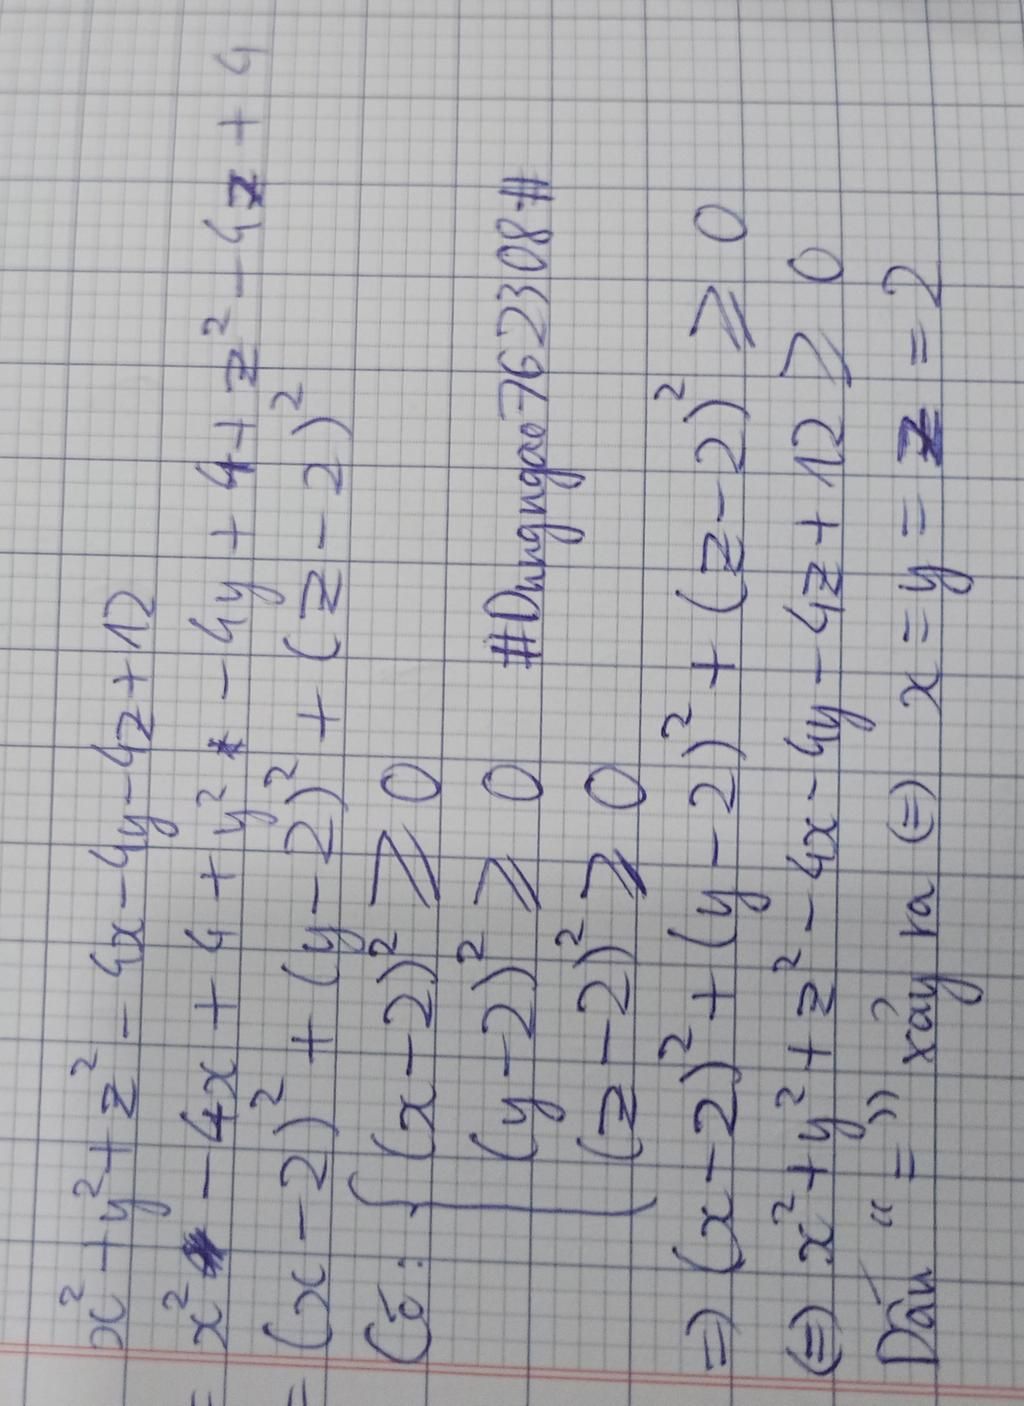 x² + y² + z² - 4x - 4y - 4z + 12
= x² - 4x + 4 + y² - 4y + 4 + z² - 4z + 4
= (x - 2)² + (y - 2)² + (z - 2)²
Có: { (x - 2)² ≥ 0
(y - 2)² ≥ 0 #Dungngao762308#
(z - 2)² ≥ 0
=> (x - 2)² + (y - 2)² + (z - 2)² ≥ 0
(=) x² + y² + z² - 4x - 4y - 4z + 12 ≥ 0
Dấu "=" xảy ra (=) x = y = z = 2